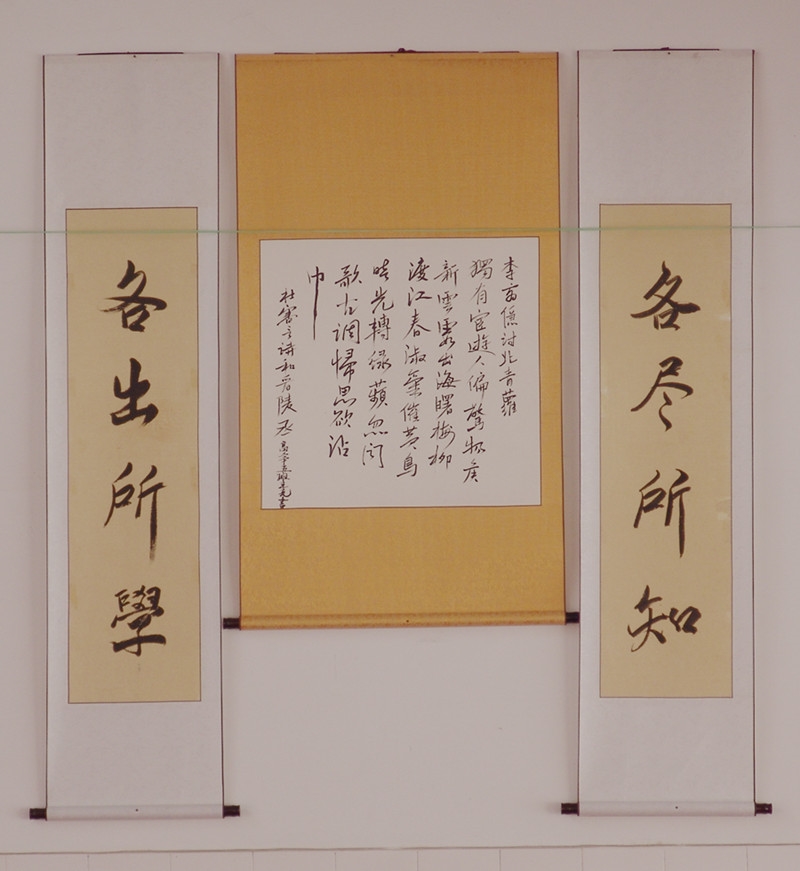 各尽所知
李商隱詩北青蘿
獨有宦遊人偏驚物候
新雲霞出海曙梅柳
渡江春淑氣催黄鳥
晴光轉綠蘋忽闻
歌古调歸思欲沾
巾
杜審言詩和晉陵丞
各出所學